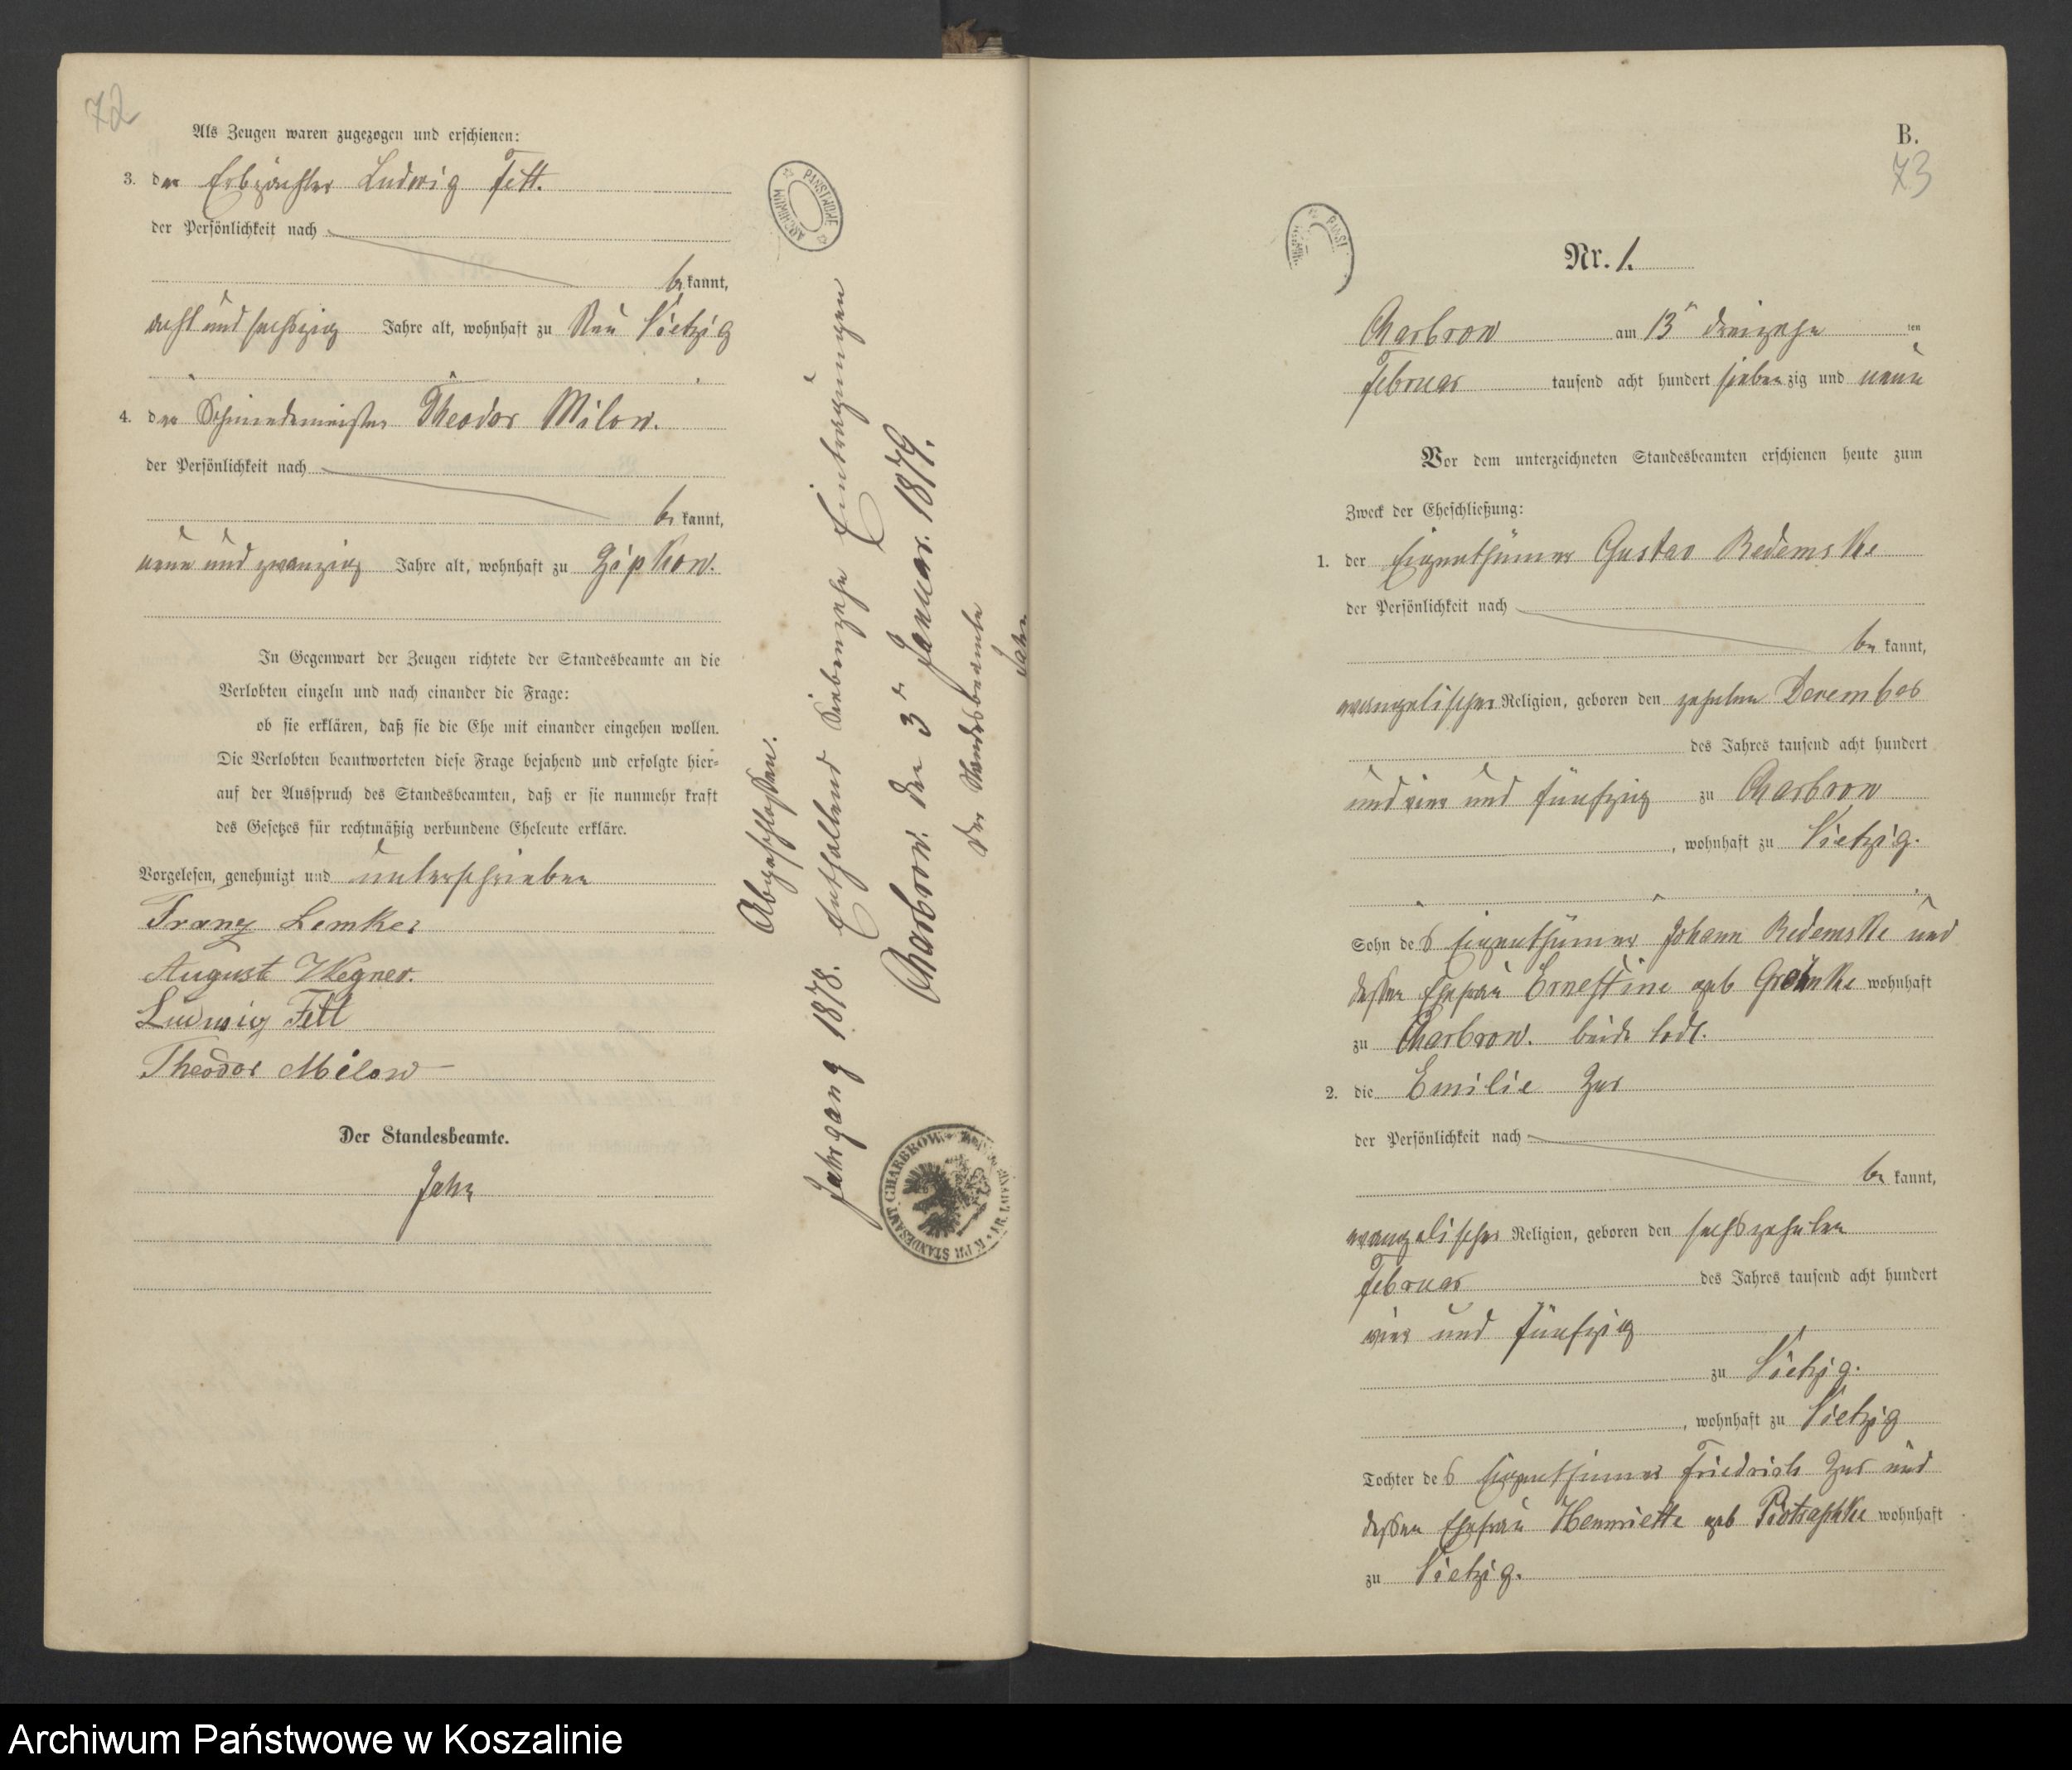 72
Als Zeugen waren zugezogen und erschienen:
3. der Erbpächter Ludwig Fett.
der Persönlichkeit nach
be kannt,
acht und sechszig Jahre alt, wohnhaft zu Neu Vietzig
4. der Schmiedemeister Theodor Milow.
der Persönlichkeit nach
be kannt,
neun und zwanzig Jahre alt, wohnhaft zu Zipkow.
In Gegenwart der Zeugen richtete der Standesbeamte an die
Verlobten einzeln und nach einander die Frage:
ob sie erklären, daß sie die Ehe mit einander eingehen wollen.
Die Verlobten beantworteten diese Frage bejahend und erfolgte hier-
auf der Ausspruch des Standesbeamten, daß er sie nunmehr kraft
des Gesetzes für rechtmäßig verbundene Eheleute erkläre.
Vorgelesen, genehmigt und unterschrieben
Franz Lemke
August Wegner.
Ludwig Fett
Theodor Milow
Der Standesbeamte.
Jahn
Abgeschlossen.
Jahrgang 1878. Enthaltend Siebenzehn Eintragungen
Charbrow. den 3n Januar. 1879.
Der Standesbeamte
Jahn
ARCHIWUM PAŃSTWOWE
K. PR. STANDESAMT CHARBROW
B.
73
Nr. 1.
Charbrow am 13n dreizehn ten
Februar tausend acht hundert siebenzig und neun
Vor dem unterzeichneten Standesbeamten erschienen heute zum
Zweck der Eheschließung:
1. der Eigenthümer Gustav Redemske
der Persönlichkeit nach
be kannt,
evangelischer Religion, geboren den zehnten Dezember
des Jahres tausend acht hundert
und vier und fünfzig zu Charbrow
, wohnhaft zu Vietzig.
Sohn des Eigenthümer Johann Redemske und
dessen Ehefrau Ernestine geb Grönke wohnhaft
zu Charbrow. beide todt.
2. die Emilie Zur
der Persönlichkeit nach
be kannt,
evangelischer Religion, geboren den sechszehnten
Februar des Jahres tausend acht hundert
vier und fünfzig
zu Vietzig.
, wohnhaft zu Vietzig
Tochter des Eigenthümer Friedrich Zur und
dessen Ehefrau Henriette geb Piotraschke wohnhaft
zu Vietzig.
Archiwum Państwowe w Koszalinie